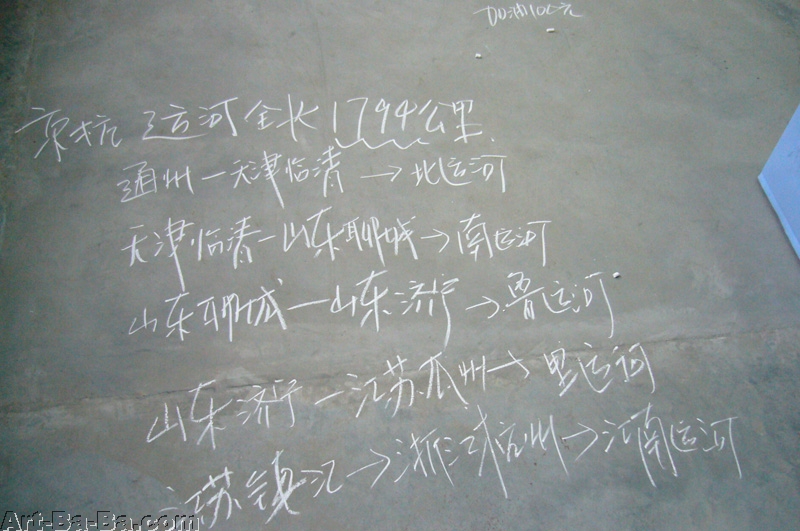 加油100元
京杭运河全长1794公里.
通州一天津临清→北运河
天津临清一山东聊城→南运河
山东聊城一山东济宁→鲁运河
山东济宁一江苏瓜州→里运河
江苏镇江→浙江杭州→江南运河
Art-Ba-Ba.com